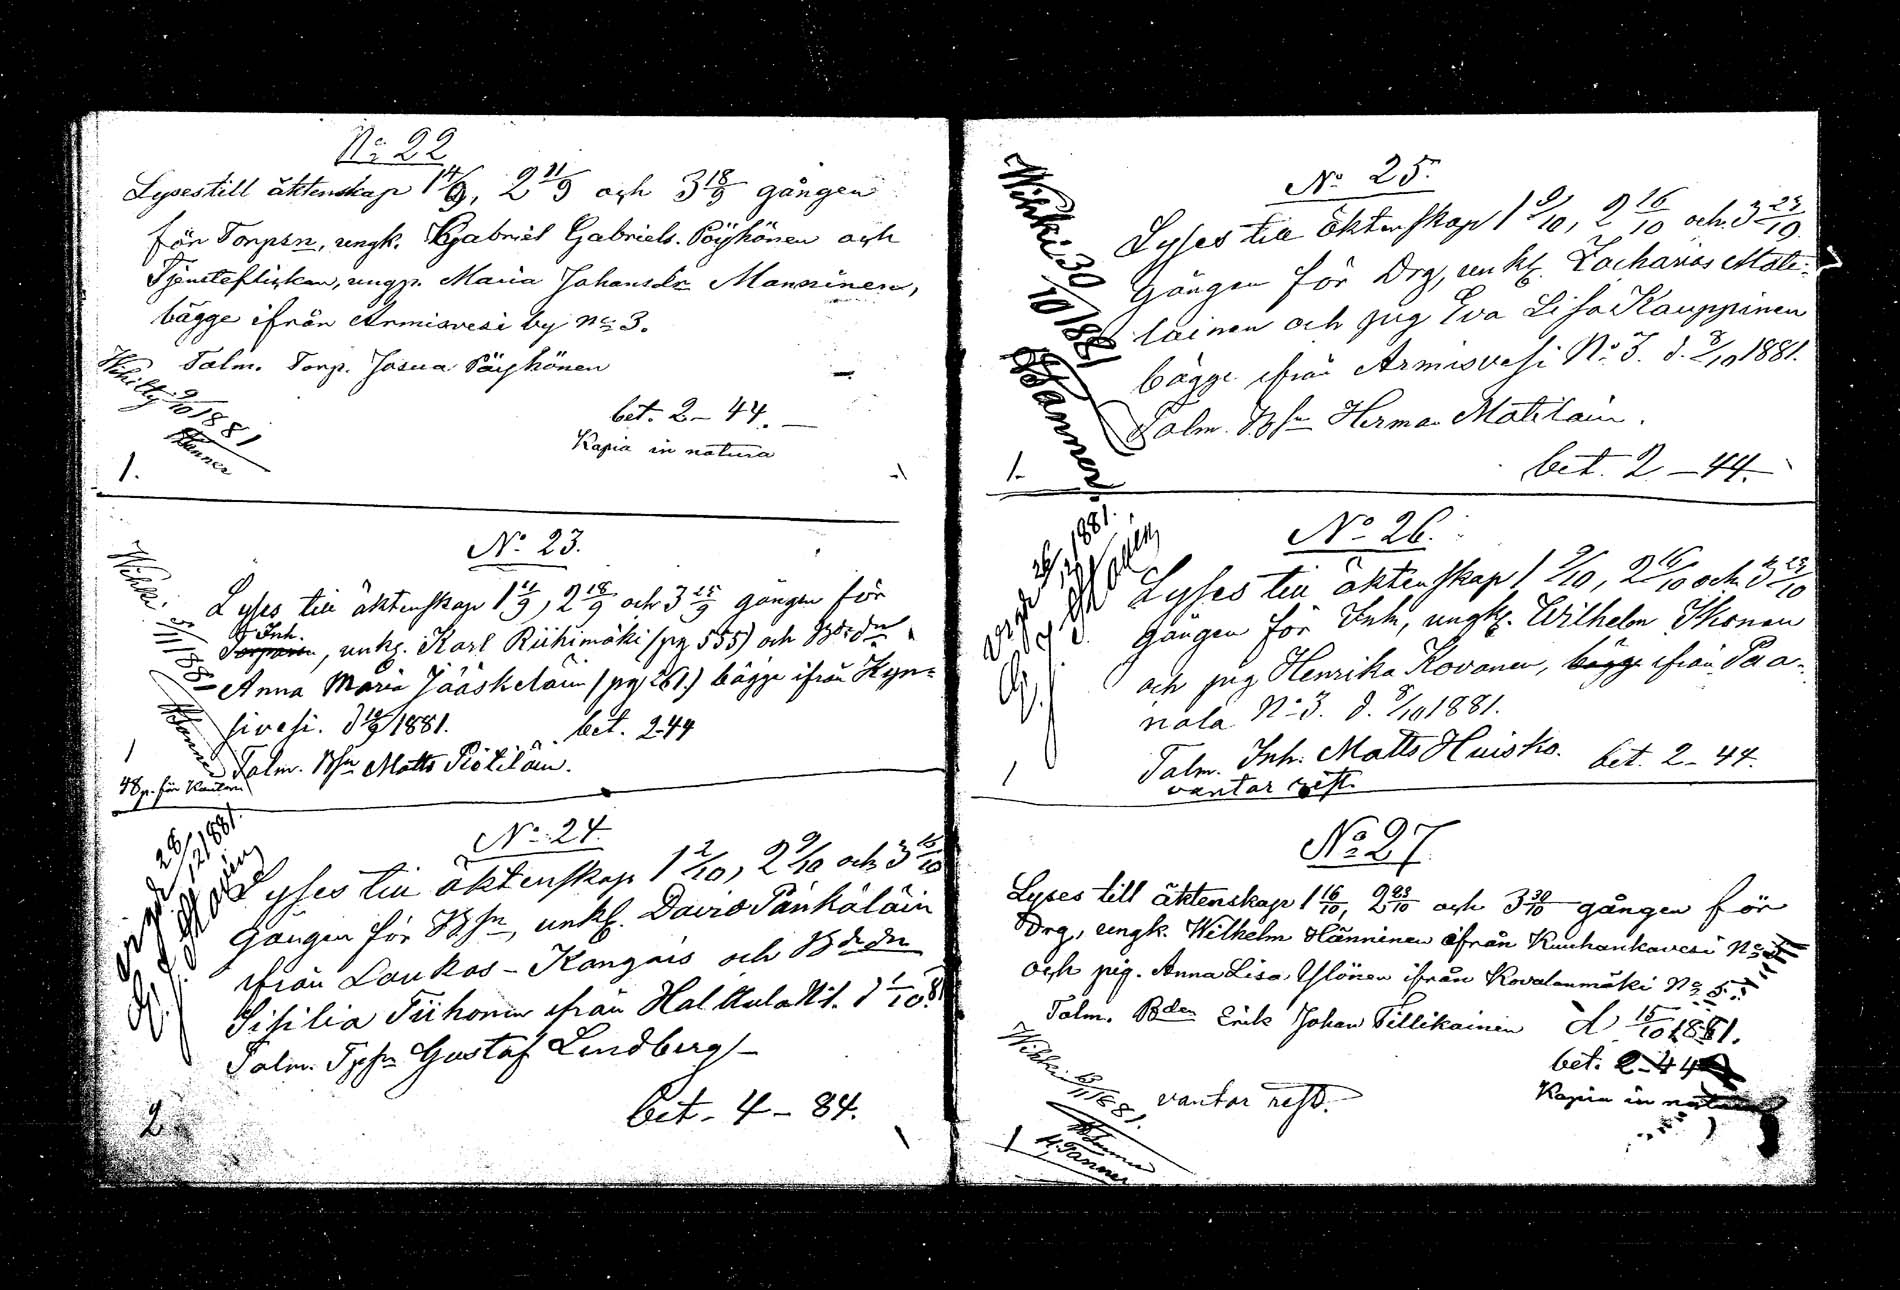 No 22
Lyses till äktenskap 1 4/9, 2 11/9 och 3 18/9 gången
för Torpsn, ungk. Gabriel Gabriels. Pöyhönen och
Tjensteflickan, ungp. Maria Johansdr Manninen,
bägge ifrån Armisvesi by No 3.
Talm. Torp. Josua Pöyhönen
bet. 2-44.
Kapia in natura
Wihitty 9/10 1881
HTanner
1.
No 23.
Lyses till äktenskap 1 11/9, 2 18/9 och 3 25/9 gången för
Inh.
Torparen, unkg. Karl Riihimäki (pg 555) och Bdedn
Anna Maria Jääskeläin (pg 261.) bägge ifrån Kyn=
sivesi. d 10/9 1881. bet. 2-44
Talm. Bsn Matts Piötiläin.
Wihki. 5/11 1881
HTanner
1
48 p. för Kantorn
No 24.
Lyses till äktenskap 1 2/10, 2 9/10 och 3 16/10
gången för Bsn, unkg. David Pänkäläin
ifrån Laukas-Kangais och Bdedn
Sisilia Tiihonen ifrån Halkula No 1. d 1/10 81
Talm. Tpsn Gustaf Lindberg
bet. 4-84.
vigde 28/12 1881.
2
No 25.
Lyses till äktenskap 1 9/10, 2 16/10 och 3 23/10
gången för Drg, unkg. Zacharias Mati=
lainen och pig Eva Lisa Kauppinen
bägge ifrån Armisvesi No 3. d. 8/10 1881.
Talm. Bsn Herman Matilain.
bet. 2-44.
Wihki 30/10 1881
HTanner.
1.
No 26.
Lyses till äktenskap 1 9/10, 2 16/10 och 3 23/10
gången för Inh, ungkg. Wilhelm Ikonen
och pig Henrika Kovanen, bägge ifrån Paa-
nala No 3. d. 8/10 1881.
Talm. Inh. Matts Huisko. bet. 2-44.
vantar rest.
vigde 26/12 1881.
1
No 27
Lyses till äktenskap 1 16/10, 2 23/10 och 3 30/10 gången för
Drg, ungk. Wilhelm Hänninen ifrån Kuuhankavesi No
och pig. Anna Lisa Ylönen ifrån Kovalanmäki No 5.
Talm. Bden Erik Johan Tillikainen d. 15/10 1881.
bet. 2-44
Kapia in natura
vantar rest.
Wihki 13/11 1881.
H. Tanner
1